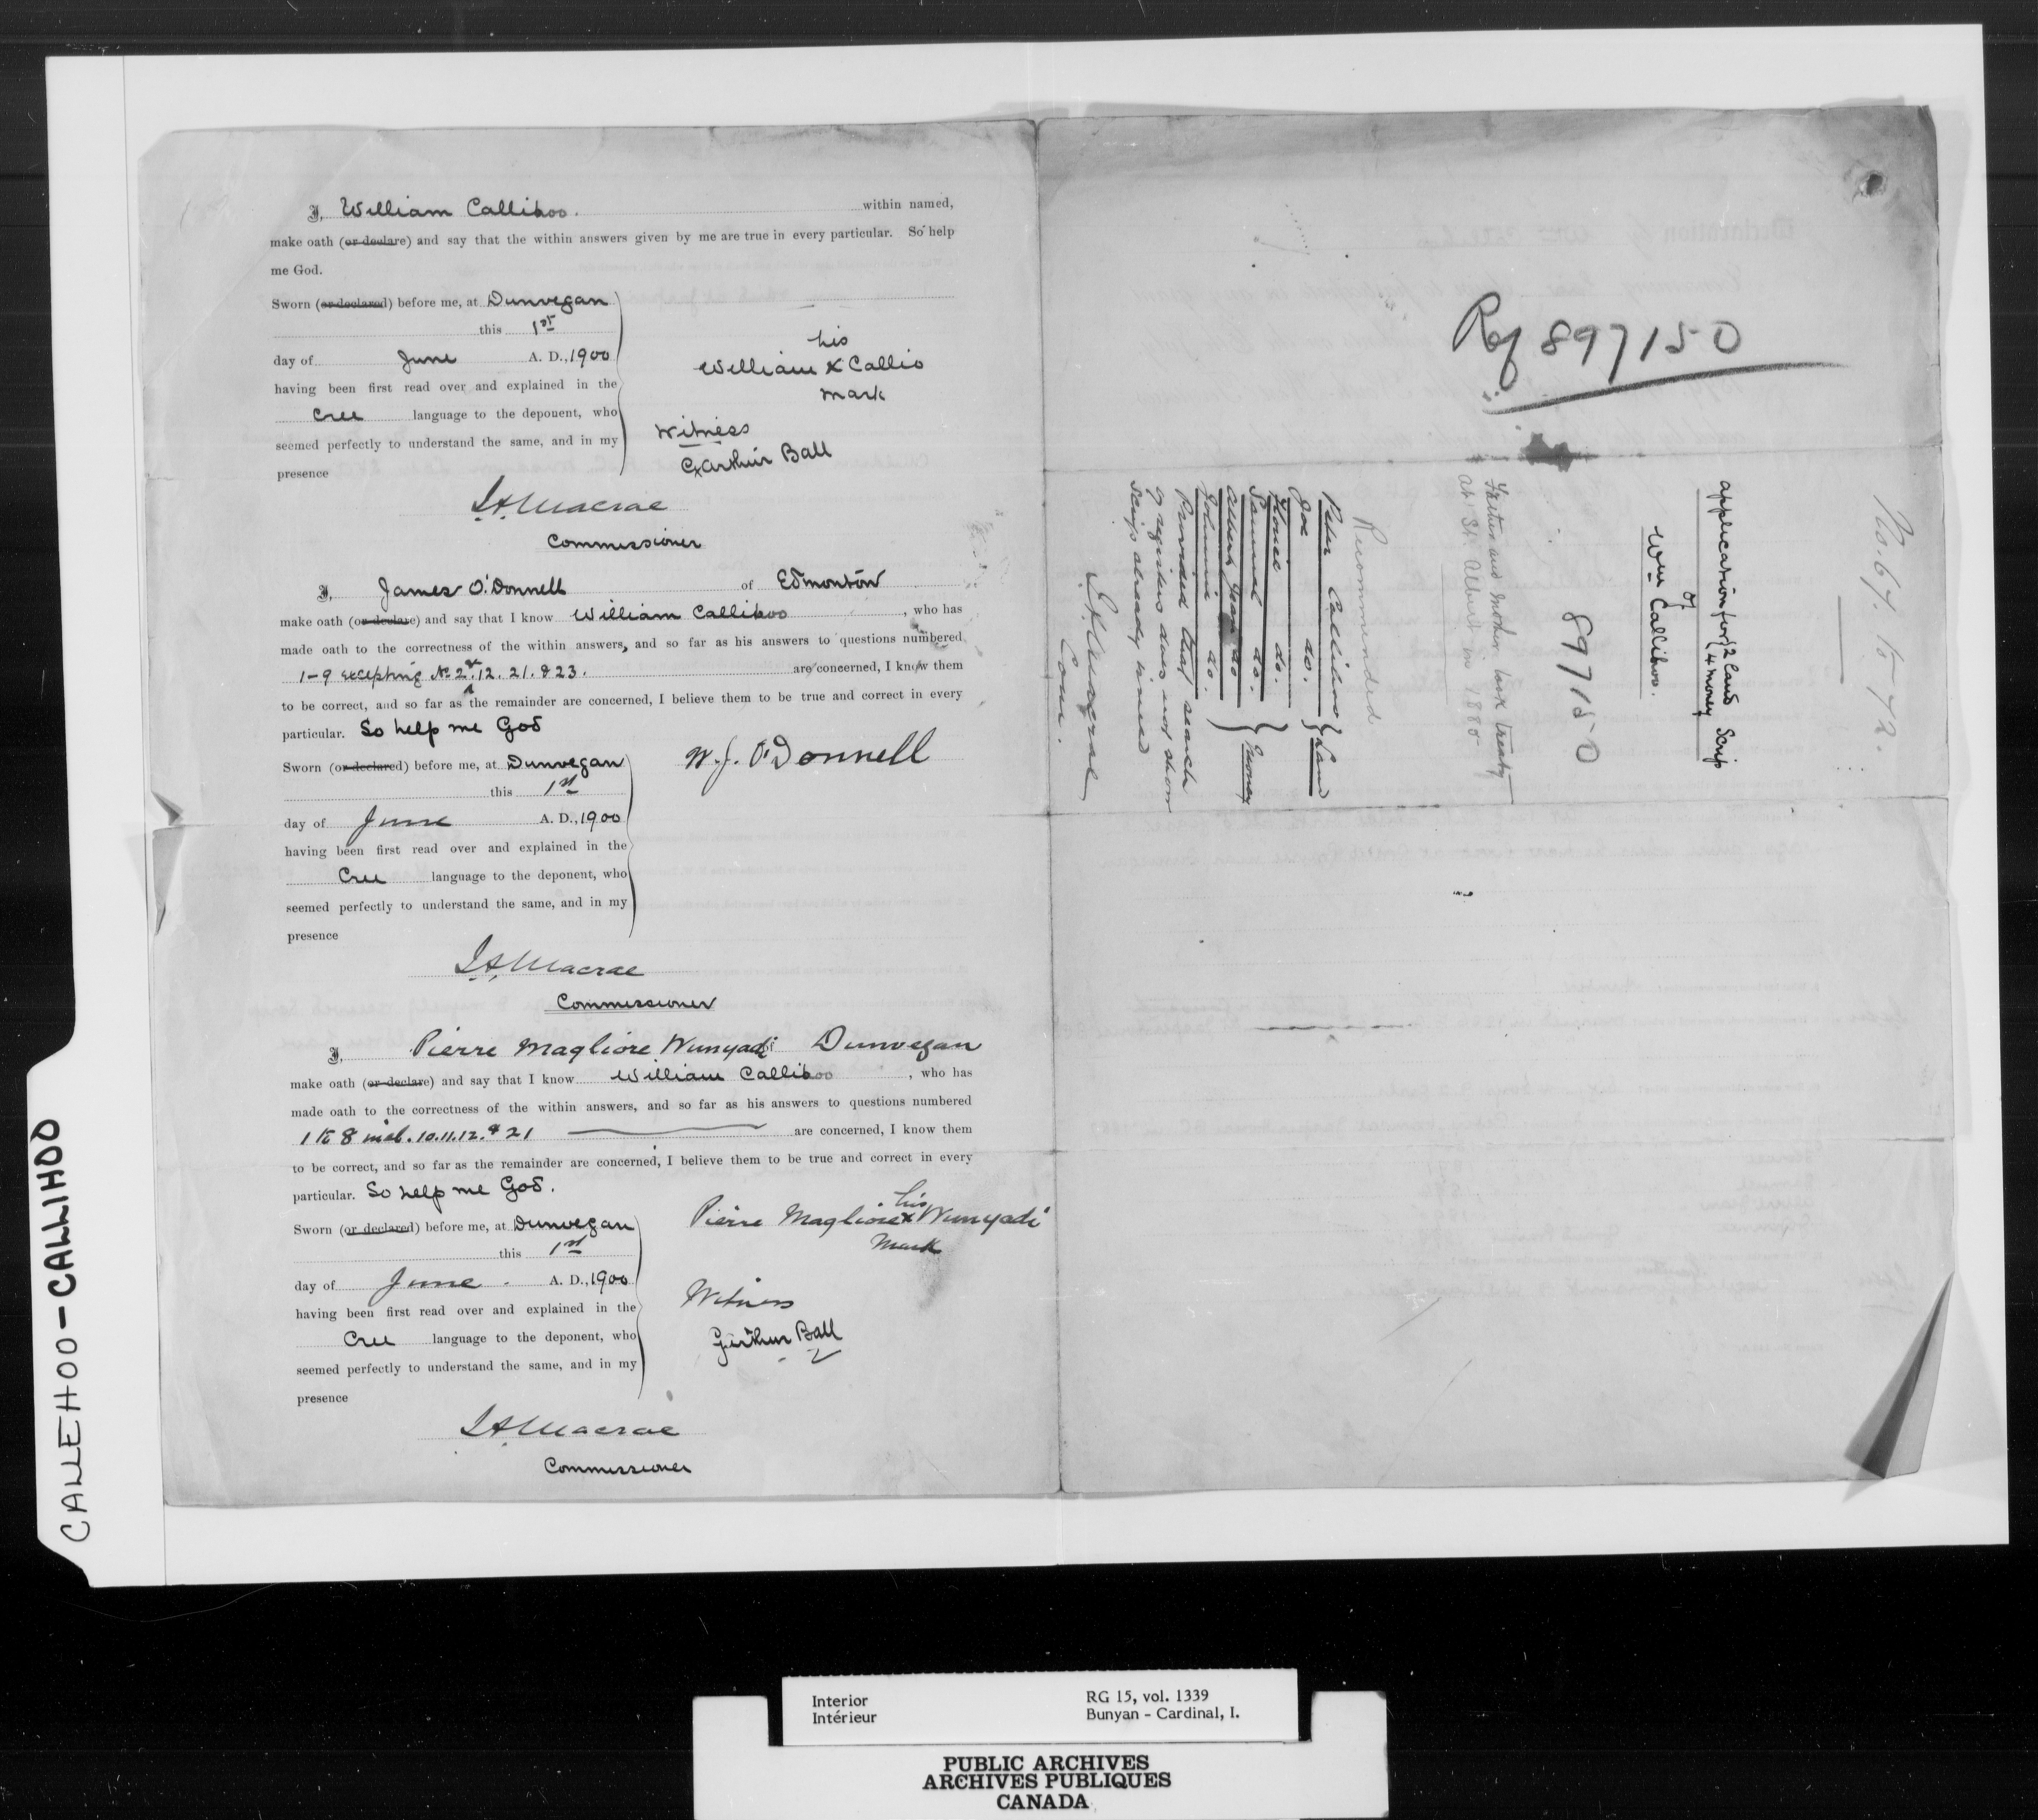 I, William Callihoo. within named,
make oath (or declare) and say that the within answers given by me are true in every particular. So help
me God.
Sworn (or declared) before me, at Dunvegan
this 1st
day of June A. D., 1900
having been first read over and explained in the
Cree language to the deponent, who
seemed perfectly to understand the same, and in my
presence
his
William X Callio
mark
Witness
Arthur Ball
J.A. Macrae
Commissioner
I, James O'Donnell of Edmonton
make oath (or declare) and say that I know William Callihoo, who has
made oath to the correctness of the within answers, and so far as his answers to questions numbered
1-9 excepting No 2. & 12. 21. & 23. are concerned, I know them
to be correct, and so far as the remainder are concerned, I believe them to be true and correct in every
particular. So help me God
Sworn (or declared) before me, at Dunvegan
this 1st
day of June A. D., 1900
having been first read over and explained in the
Cree language to the deponent, who
seemed perfectly to understand the same, and in my
presence
W. J. O'Donnell
J.A. Macrae
Commissioner
I, Pierre Magliore Wunyadi of Dunvegan
make oath (or declare) and say that I know William Callihoo, who has
made oath to the correctness of the within answers, and so far as his answers to questions numbered
1 to 8 incl. 10. 11. 12. & 21 are concerned, I know them
to be correct, and so far as the remainder are concerned, I believe them to be true and correct in every
particular. So help me God.
Sworn (or declared) before me, at Dunvegan
this 1st
day of June A. D., 1900
having been first read over and explained in the
Cree language to the deponent, who
seemed perfectly to understand the same, and in my
presence
his
Pierre Magliore X Wunyadi
Mark
Witness
Arthur Ball
J.A. Macrae
Commissioner
Ref 897150
No. 64. 16-72.
application for 2 Land Scrip
4 money
of
Wm Callihoo.
897150
Father and mother took treaty
at St. Albert in 1880
Recommended
Peter Callihoo Land
Joe do.
Florice do. money
Samuel do.
Albert do
Johnnie do.
Provided that search
of registers does not show
scrip already issued
J.A. Macrae
Com.
CALLEHOO-CALLIHOO
Interior
Intérieur
RG 15, vol. 1339
Bunyan - Cardinal, I.
PUBLIC ARCHIVES
ARCHIVES PUBLIQUES
CANADA